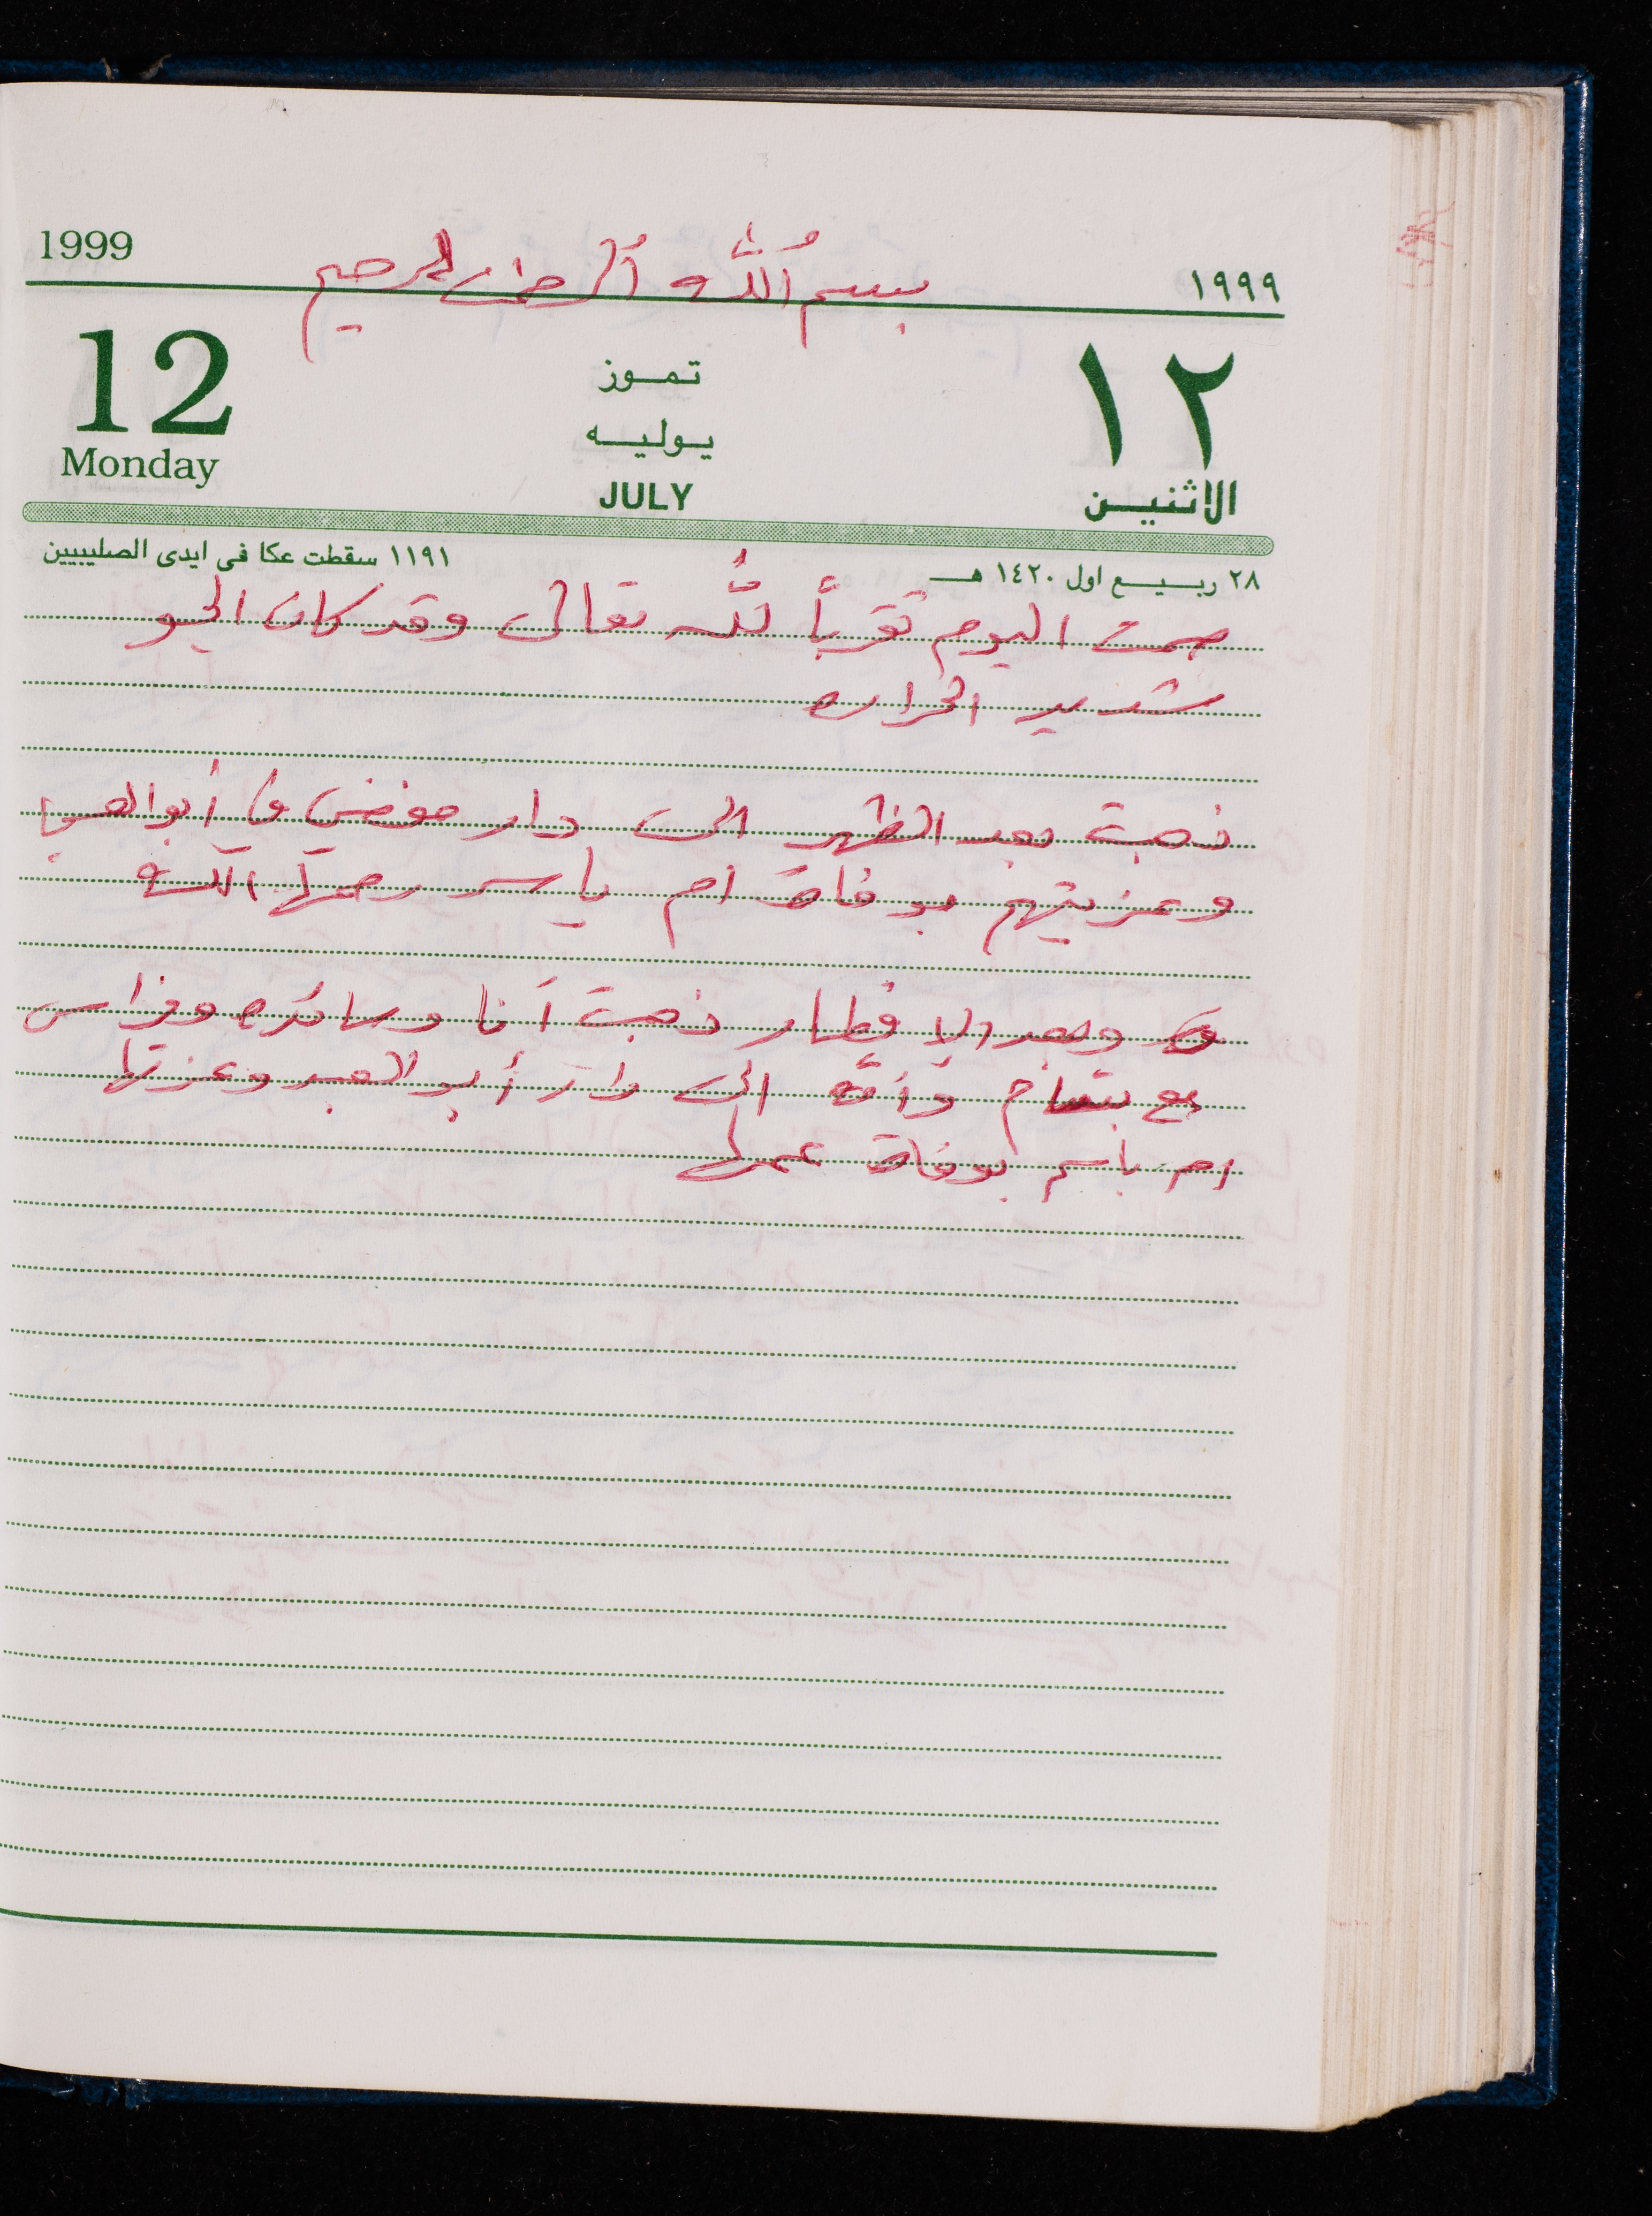 بسم الله الرحمن الرحيم
1999 ١٩٩٩
12 تموز ١٢
يوليه
Monday JULY الاثنين
١١٩١ سقطت عكا فى ايدى الصليبيين
٢٨ ربيع اول ١٤٢٠ هـ
صمت اليوم تقرباً لله تعالى وقد كان الجو
شديد الحراره
ذهبت بعد الظهر الى دار مفضي أبو
وعزيتهم بوفاة ام ياسر رحمها الله
وبعد الإفطار ذهبت أنا وسائده وفراس
مع وآمنه الى دار أبو العبد وعزتها
ام باسم بوفاة عمها